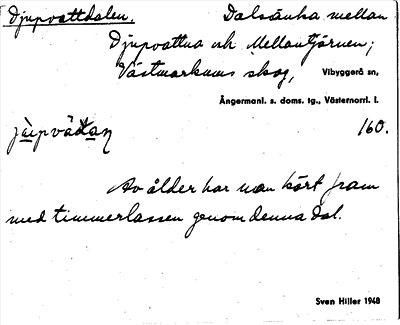 Djupvattdalen. Dalsänka mellan
Djupvattna och Mellantjärnen;
Västmarkens skog, Vibyggerå sn,
Ångermanl. s. doms. tg., Västernorrl. l.
160.
Av ålder har man kört fram
med timmerlassen genom denna dal.
Sven Hiller 1948